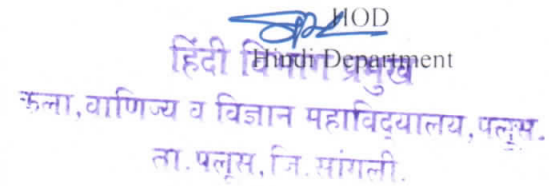 HOD
Hindi Department
हिंदी विभाग प्रमुख
कला, वाणिज्य व विज्ञान महाविद्यालय, पलूस.
ता. पलूस, जि. सांगली.